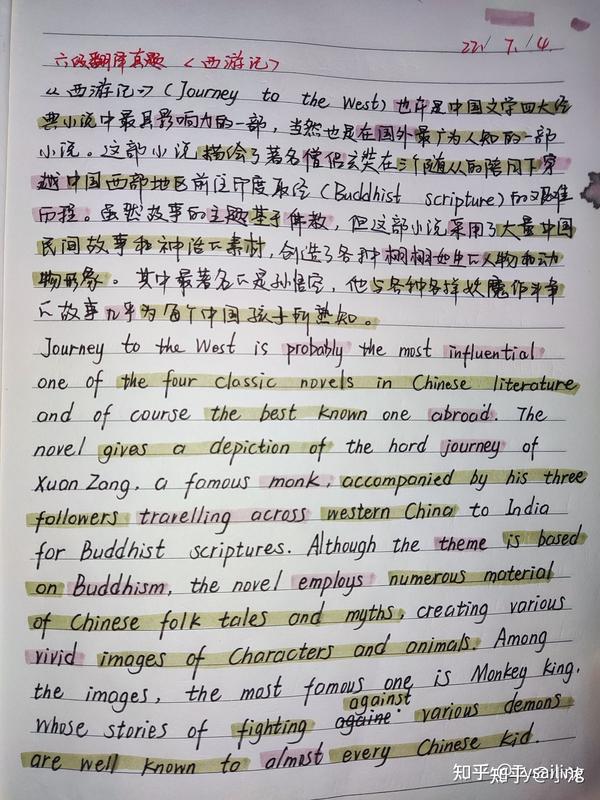 22/ 7. 14.
六级翻译真题 <西游记>
《西游记》(Journey to the West) 也许是中国文学四大经
典小说中最具影响力的一部，当然也是在国外最广为人知的一部
小说。这部小说描绘了著名僧侣玄奘在三个随从的陪同下穿
越中国西部地区前往印度取经 (Buddhist scripture) 的艰难
历程。虽然故事的主题基于佛教，但这部小说采用了大量中国
民间故事和神话的素材，创造了各种栩栩如生的人物和动
物形象。其中最著名的是孙悟空，他与各种各样妖魔作斗争
的故事几乎为每个中国孩子所熟知。
Journey to the West is probably the most influential
one of the four classic novels in Chinese literature
and of course the best known one abroad. The
novel gives a depiction of the hard journey of
Xuan Zang, a famous monk, accompanied by his three
followers travelling across western China to India
for Buddhist scriptures. Although the theme is based
on Buddhism, the novel employs numerous material
of Chinese folk tales and myths, creating various
vivid images of Characters and animals. Among
the images, the most famous one is Monkey king,
against
whose stories of fighting againe various demons
are well known to almost every Chinese kid.
知乎 @小洺